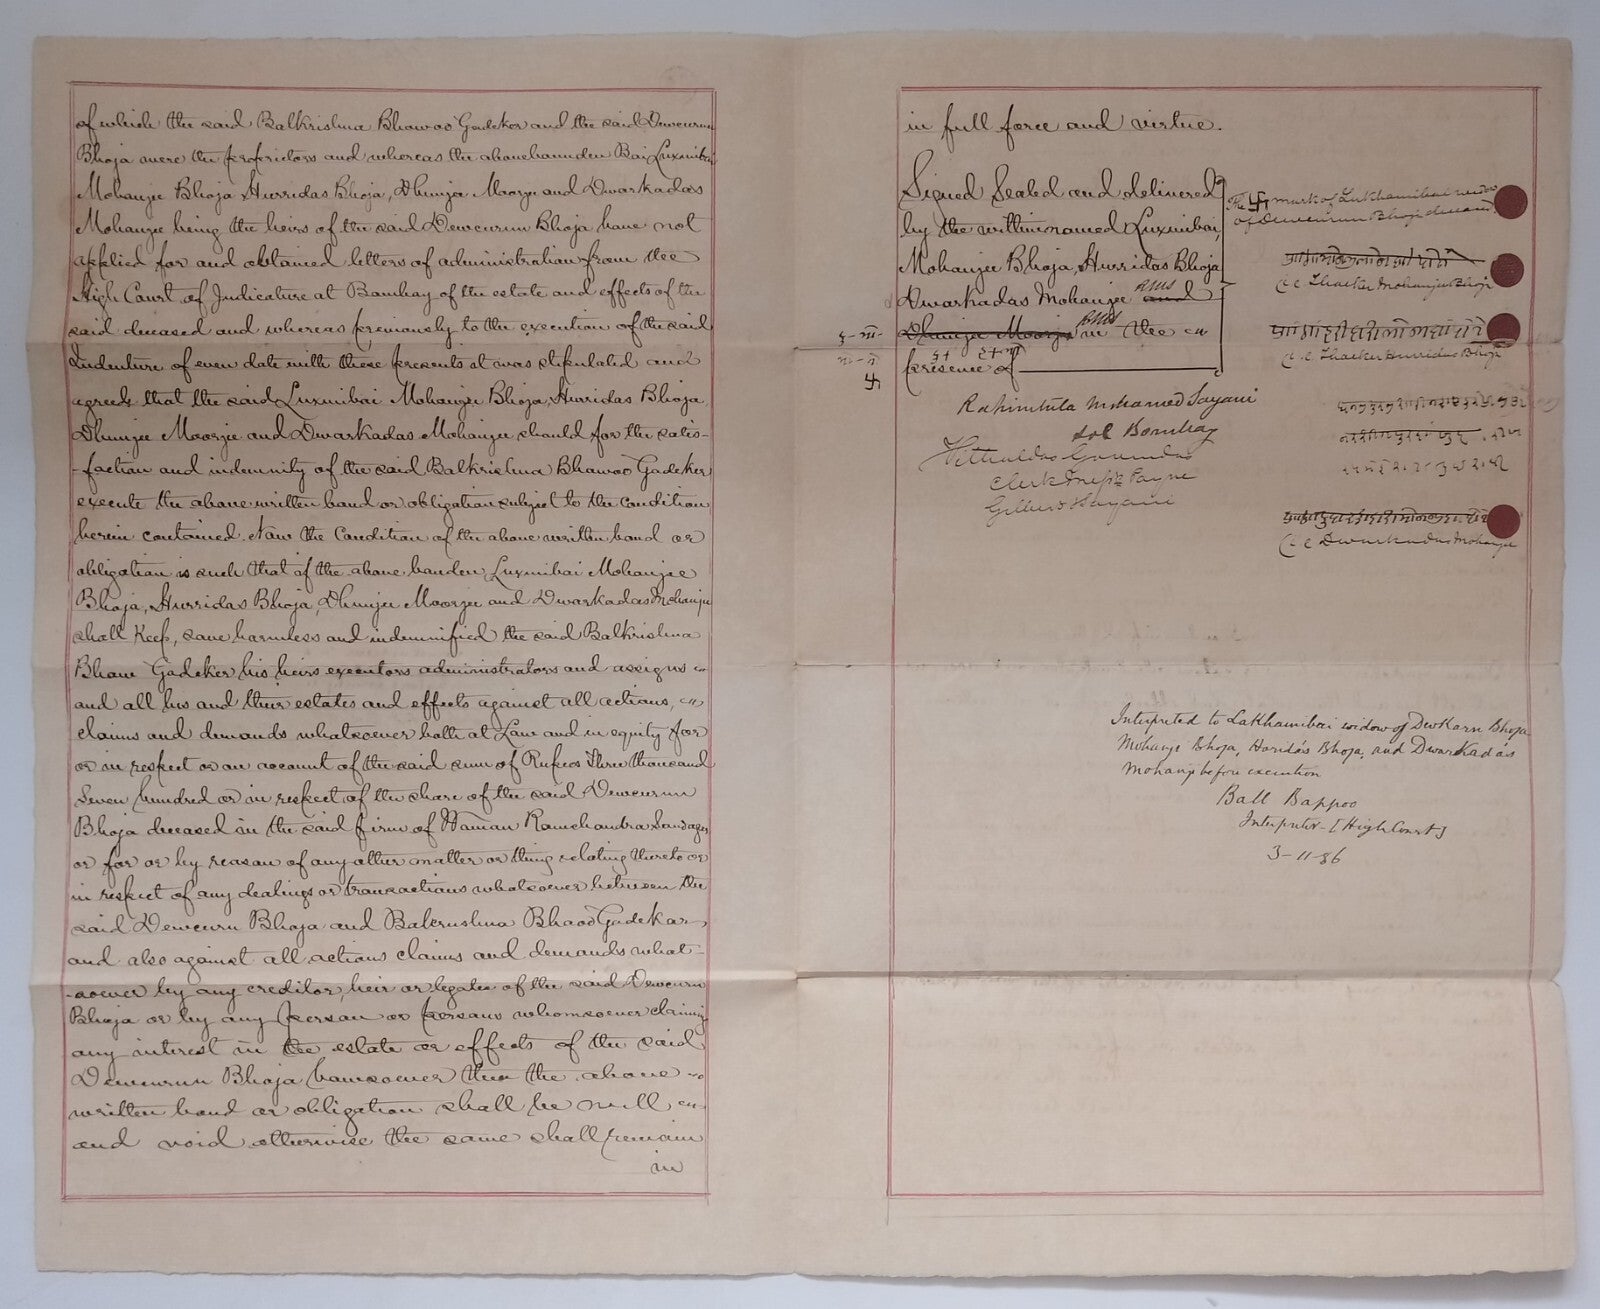 of which the said Balkrishna Bhawoo Gadeker and the said Dewcurn
Bhoja were the proprietors and whereas the abovebounden Bai Luxmibai
Mohanjee Bhoja Hurridas Bhoja, Dhunjee Moorjee and Dwarkadas
Mohanjee being the heirs of the said Dewcurn Bhoja have not
applied for and obtained letters of administration from the
High Court of Judicature at Bombay of the estate and effects of the
said deceased and whereas previously to the execution of the said
Indenture of even date with these presents it was stipulated and
agreed that the said Luxmibai Mohanjee Bhoja, Hurridas Bhoja,
Dhunjee Moorjee and Dwarkadas Mohanjee should for the satis-
-faction and indemnity of the said Balkrishna Bhawoo Gadeker
execute the above written bond or obligation subject to the condition
herein contained. Now the Condition of the above written bond or
obligation is such that if the above bounden, Luxmibai Mohanjee
Bhoja, Hurridas Bhoja, Dhunjee Moorjee and Dwarkadas Mohanjee
shall keep, save harmless and indemnified the said Balkrishna
Bhawoo Gadeker his heirs executors administrators and assigns
and all his and their estates and effects against all actions,
claims and demands whatsoever both at Law and in equity for
or in respect or on account of the said sum of Rupees Three thousand
Seven hundred or in respect of the share of the said Dewcurn
Bhoja deceased in the said firm of Waman Ramchandra
or for or by reason of any other matter or thing relating thereto or
in respect of any dealings or transactions whatsoever between the
said Dewcurn Bhoja and Balcrushna Bhaoo Gadekar,
and also against all actions claims and demands what-
-soever by any creditor, heir or legatee of the said Dewcurn
Bhoja or by any person or persons whomsoever claiming
any interest in the estate or effects of the said
Dewcurn Bhoja howsoever then the above
written bond or obligation shall be null
and void otherwise the same shall remain
in
in full force and virtue.
Signed Sealed and delivered
by the withinnamed Luxmibai,
Mohanjee Bhoja, Hurridas Bhoja
Dwarkadas Mohanjee RMS and
Dhunjee Moorjee RMS in the
presence of
The 卐 mark of Lakhamibai widow
of Dewcurn Bhoja deceased
Thacker Mohanjee Bhoja
Thacker Hurridas Bhoja
Dwarkadas Mohanjee
Rahimtula Mohamed Sayani
Sol Bombay
Vithaldas
Clerk Payne
Gilbert & Sayani
Interpreted to Lakhamibai widow of Devkarn Bhoja
Mohanji Bhoja, Haridás Bhoja, and Dwarkadás
Mohanji before execution
Ball Bappoo
Interpreter - [High Court]
3-11-86